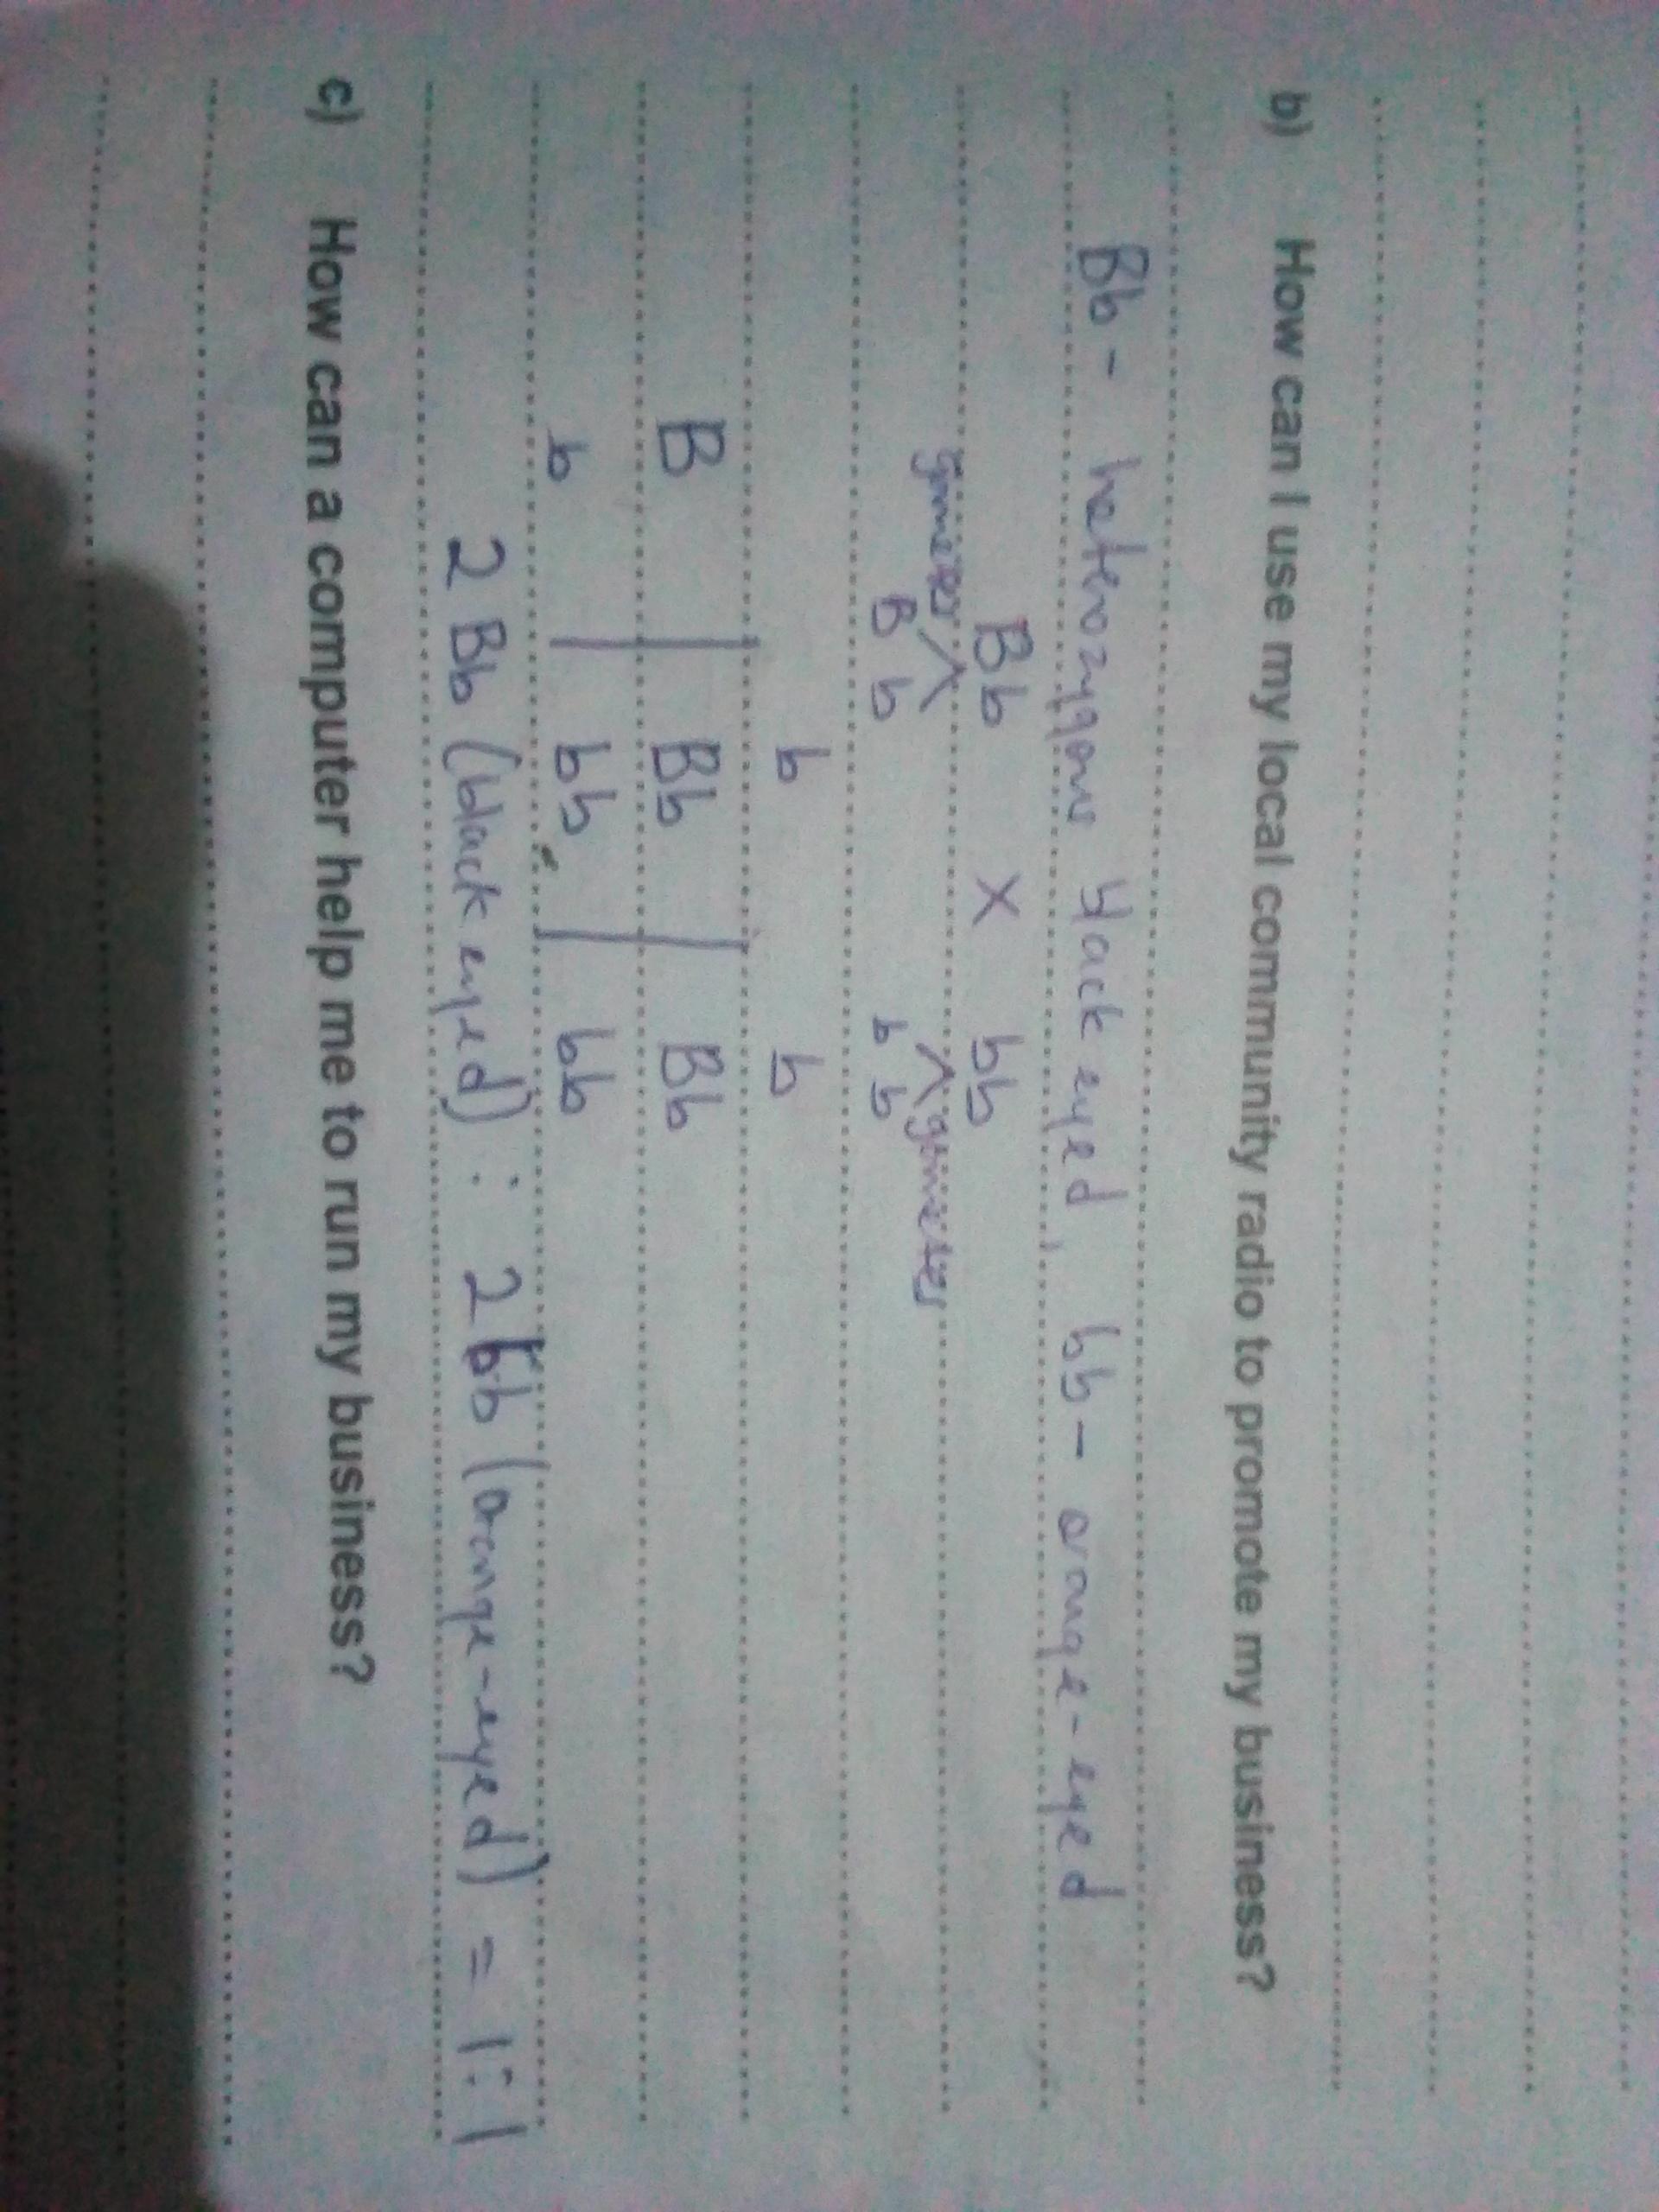 b) How can I use my local community radio to promote my business?
Bb - heterozygous black eyed, bb - orange-eyed
Bb X bb
gametes B b b b gametes
b b
B Bb Bb
b bb bb
2 Bb (black eyed) : 2bb (orange-eyed) = 1:1
c) How can a computer help me to run my business?